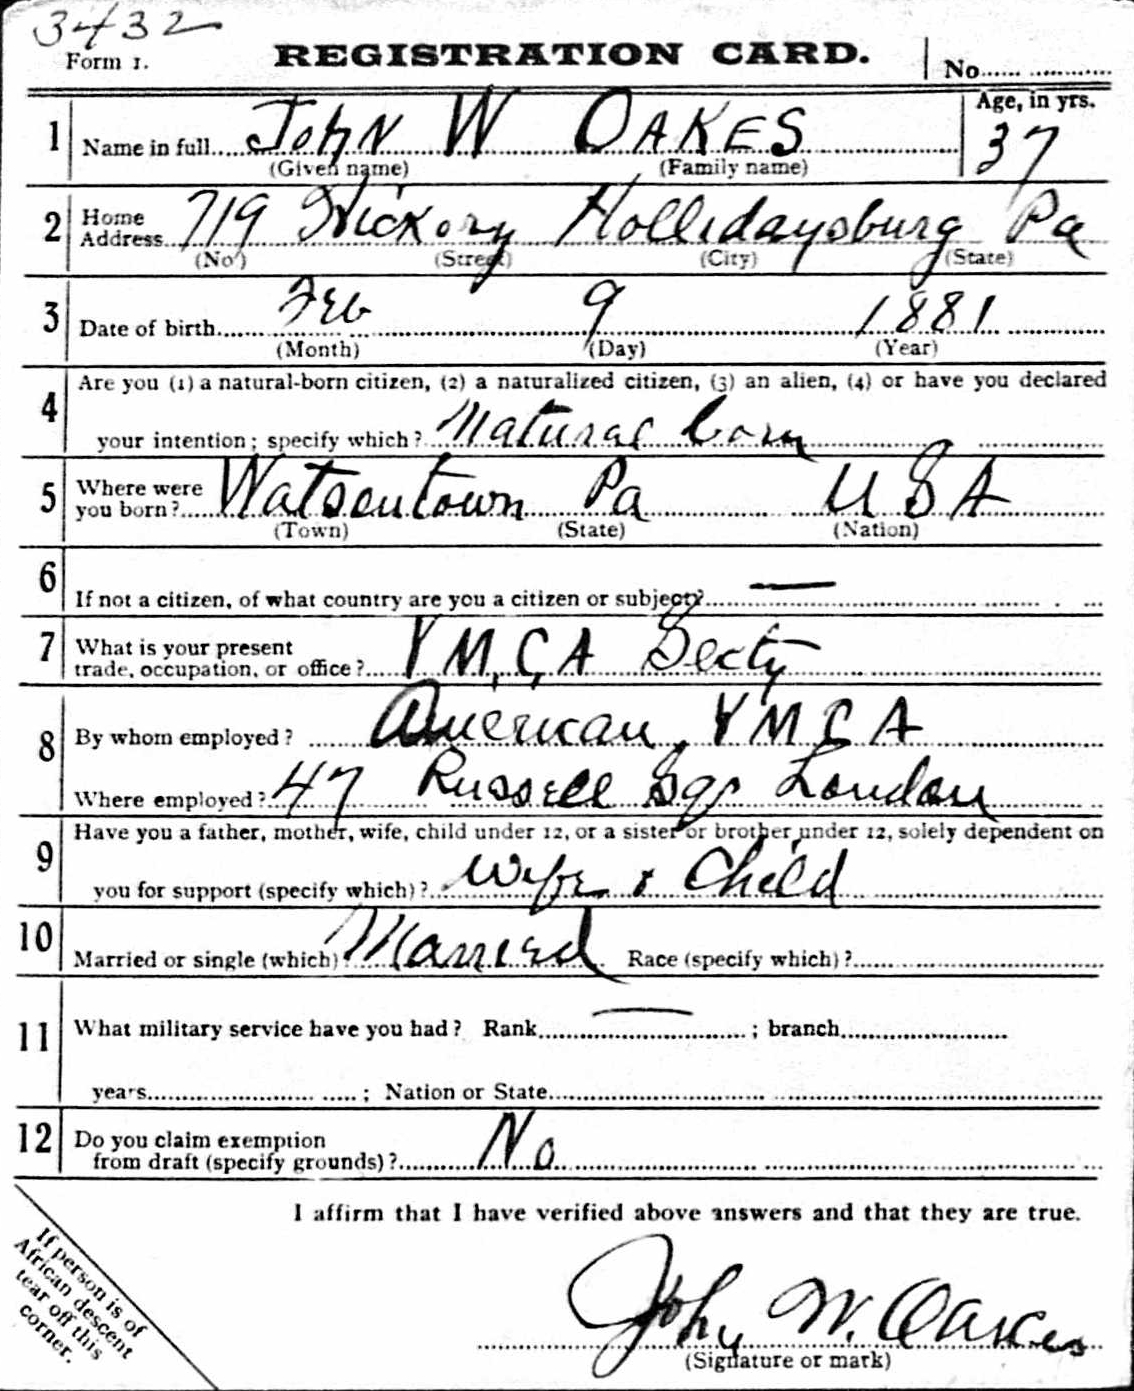 3432
Form 1. REGISTRATION CARD. No.
1 Name in full John W OAKES Age, in yrs. 37
(Given name) (Family name)
2 Home Address 719 Hickory Hollidaysburg Pa
(No.) (Street) (City) (State)
3 Date of birth Feb 9 1881
(Month) (Day) (Year)
4 Are you (1) a natural-born citizen, (2) a naturalized citizen, (3) an alien, (4) or have you declared
your intention; specify which? Natural born
5 Where were you born? Watsontown Pa U S A
(Town) (State) (Nation)
6 If not a citizen, of what country are you a citizen or subject? —
7 What is your present trade, occupation, or office? Y.M.C.A Secty
8 By whom employed? American Y M C A
Where employed? 47 Russell Sqr London
9 Have you a father, mother, wife, child under 12, or a sister or brother under 12, solely dependent on
you for support (specify which)? Wife & Child
10 Married or single (which)? Married Race (specify which)?
11 What military service have you had? Rank — ; branch
years ; Nation or State
12 Do you claim exemption from draft (specify grounds)? No
I affirm that I have verified above answers and that they are true.
John W. Oakes
(Signature or mark)
If person is of
African descent
tear off this
corner.